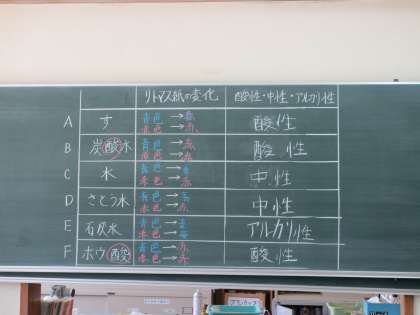 リトマス紙の変化 酸性・中性・アルカリ性
A す 青色→ 酸性
赤色→赤
B 炭酸水 青色→赤 酸性
赤色→赤
C 水 青色→青 中性
赤色→赤
D さとう水 青色→青 中性
赤色→赤
E 石灰水 青色→青 アルカリ性
赤色→青
F ホウ酸 青色→赤 酸性
赤色→赤